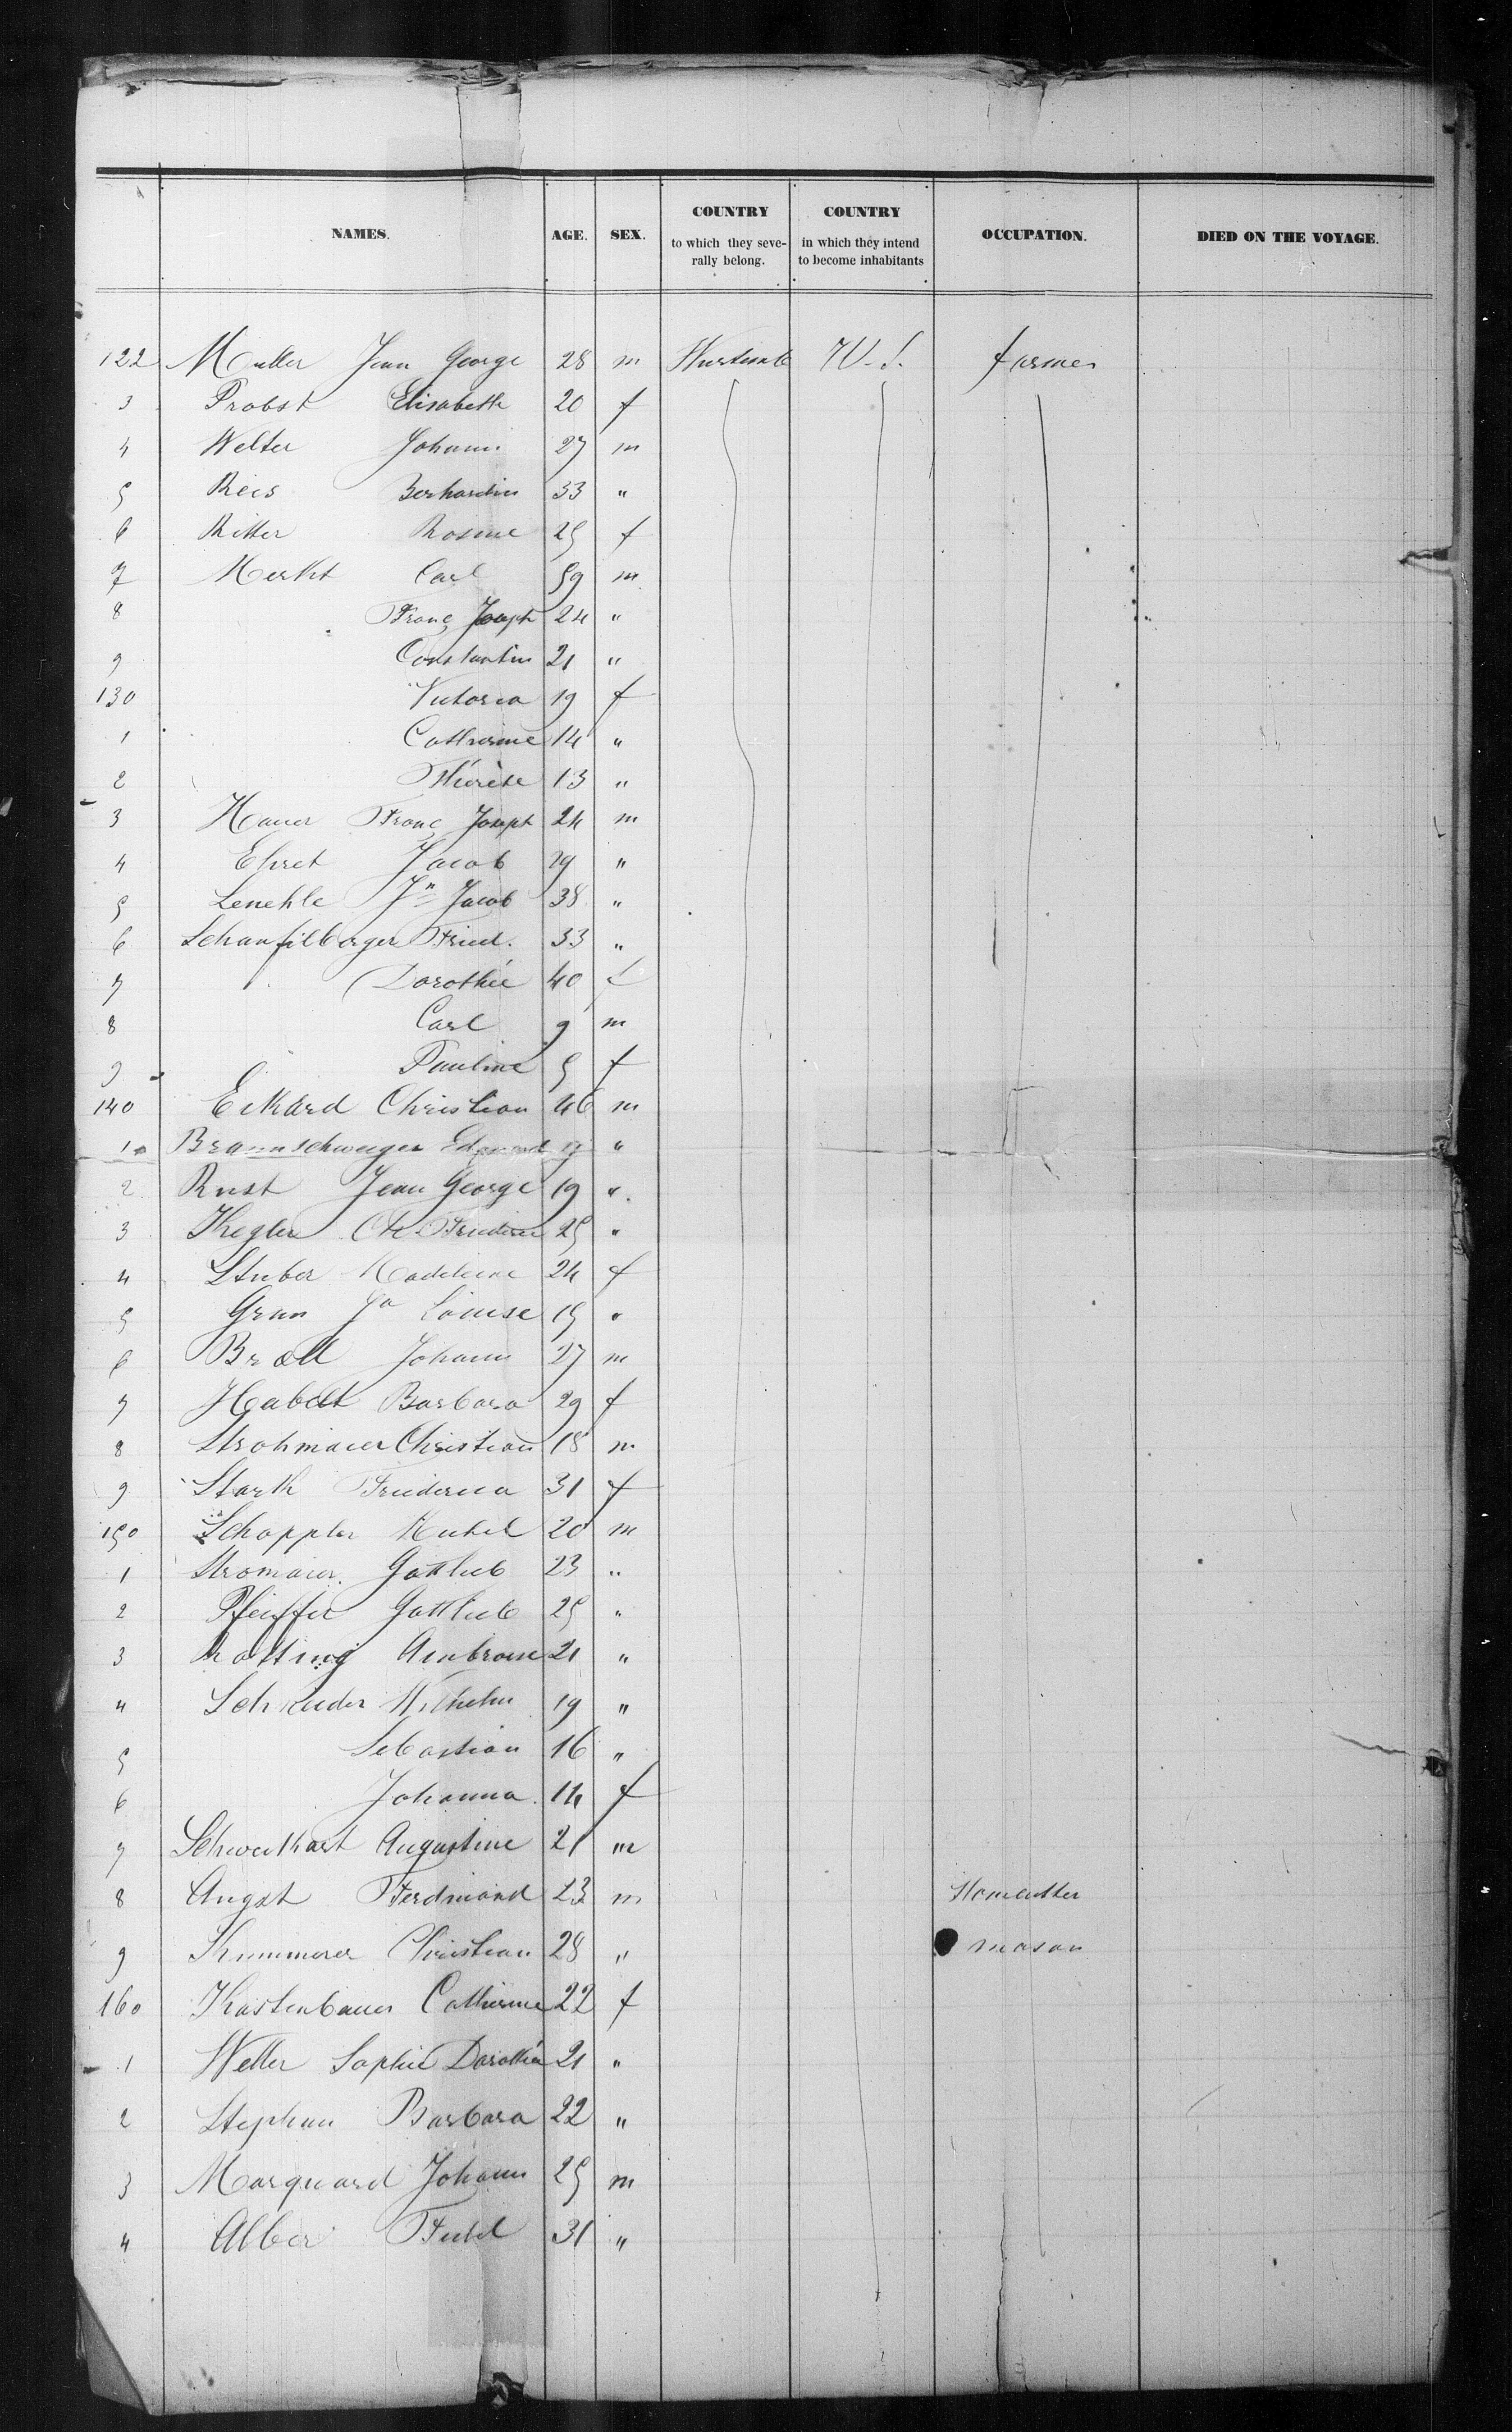 NAMES. AGE. SEX. COUNTRY to which they severally belong. COUNTRY in which they intend to become inhabitants OCCUPATION. DIED ON THE VOYAGE.
122 Muller Jean George 28 m Wurtemb U.S. farmer
3 Probst Elisabeth 20 f
4 Welter Johann 27 m
5 Reis Berhardin 33 "
6 Ritter Rosine 25 f
7 Merkt Carl 59 m
8 Franç Joseph 24 "
9 Constantin 21 "
130 Victoria 19 f
1 Catherine 14 "
2 Thérèse 13 "
3 Hauer Franç Joseph 24 m
4 Ehret Jacob 29 "
5 Jn Jacob 38 "
6 Schaufilberger Fried. 33 "
7 Dorothée 40 f
8 Carl 9 m
9 Pauline 5 f
140 Eckard Christian 46 m
1 Braunschweiger Edmond "
2 Rust Jean George 19 "
3 Kegler 25 "
4 Stuber Madeleine 24 f
5 Grun Ja Louise 19 "
6 Brall Johann 27 m
7 Habelt Barbara 29 f
8 Strohmaier Christian 18 m
9 Stark Friederica 31 f
150 Schoppler Michel 20 m
1 Stromaier Gottlieb 23 "
2 Pfeiffer Gottlieb 25 "
3 Rotting Ambroise 21 "
4 Schneider Wilhelm 19 "
5 Sebastian 16 "
6 Johanna 14 f
7 Schweikart Augustine 21 m
8 Angst Ferdinand 23 m
9 Kummerer Christian 28 " mason
160 Kastenbauer Catherine 22 f
1 Weller Sophie Dorothée 21 "
2 Stephan Barbara 22 "
3 Marquard Johann 25 m
4 Alber Fidel 31 "